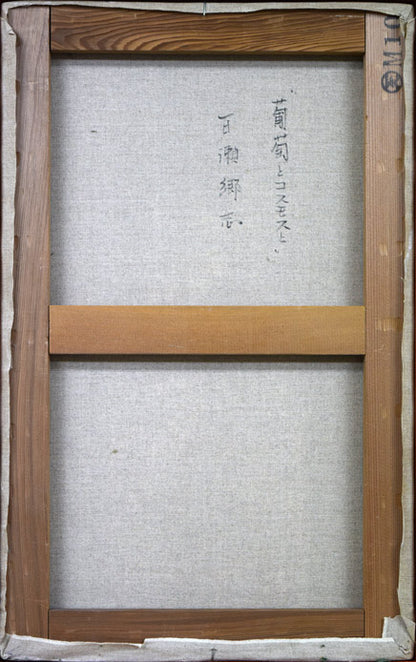 〝葡萄とコスモスと〟
百瀬郷志
M10